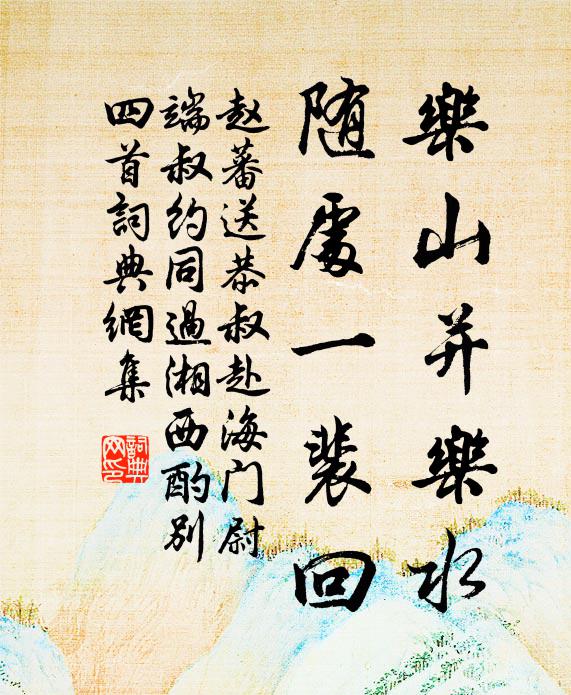 樂山并樂水
随處一裴回
赵蕃送恭叔赴海门尉
端叔约同過湘西酌别
四首詞典網集
詞典网印